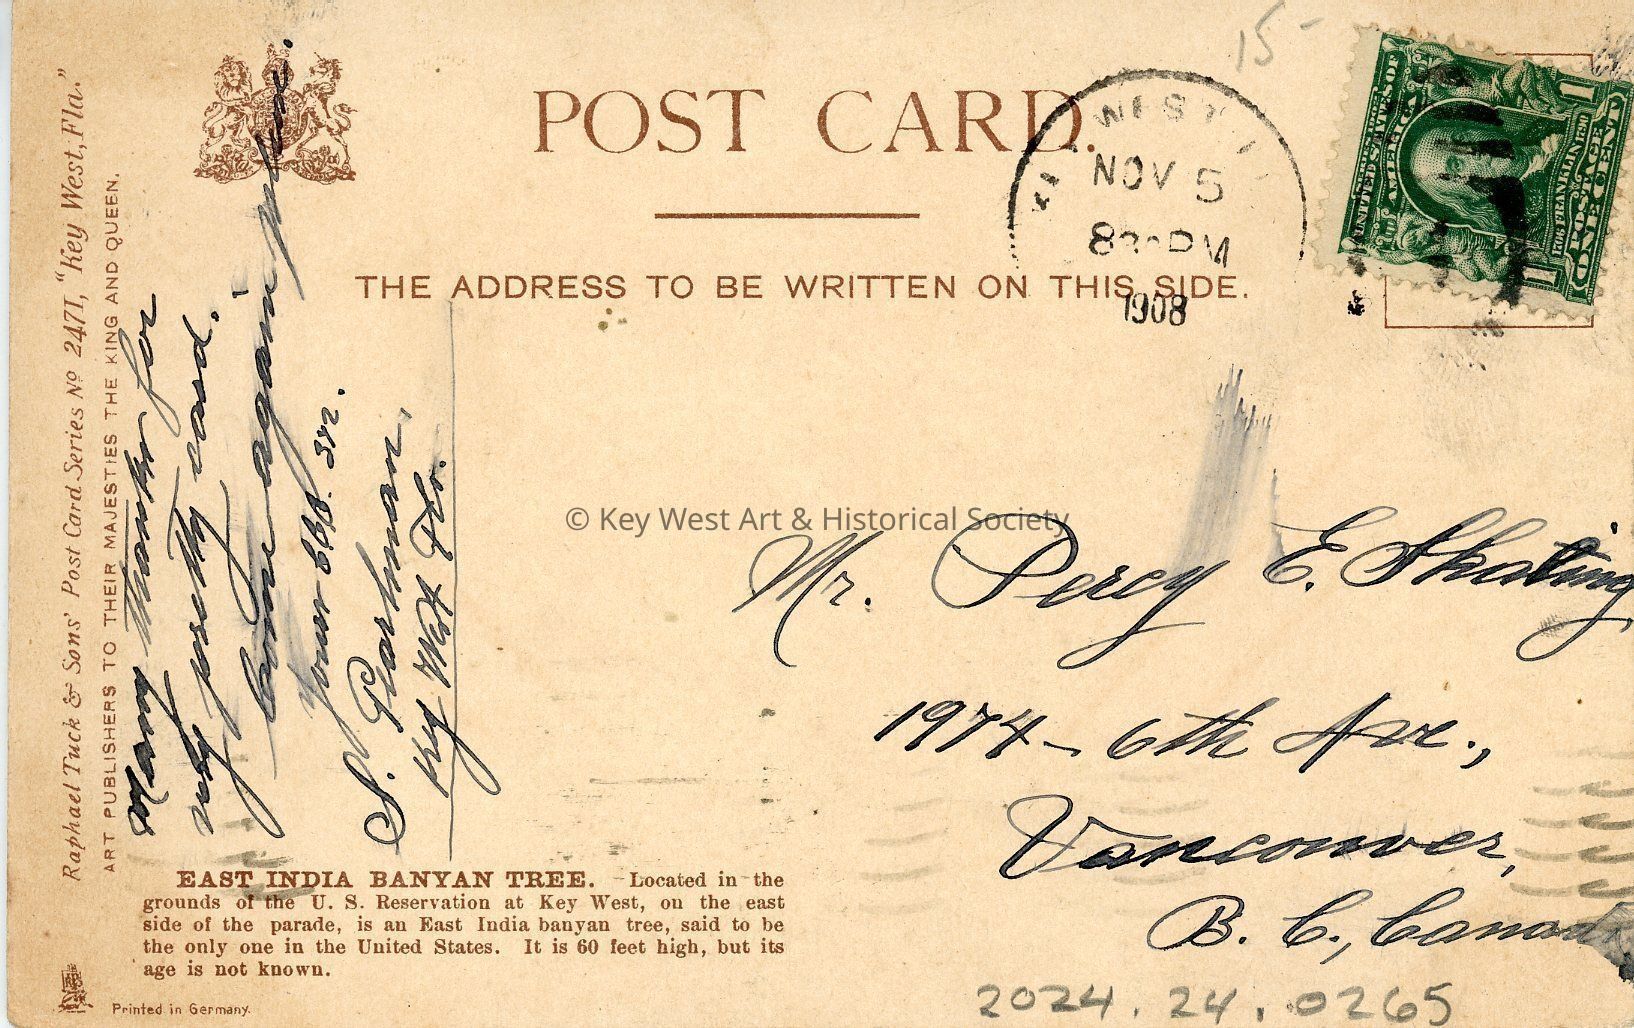 15-
POST CARD.
KEY WEST
NOV 5
PM
1908
THE ADDRESS TO BE WRITTEN ON THIS SIDE.
UNITED STATES OF
AMERICA
FRANKLIN
POSTAGE
ONE CENT
1
1
Raphael Tuck & Sons' Post Card Series No 2471, "Key West, Fla."
ART PUBLISHERS TO THEIR MAJESTIES THE KING AND QUEEN.
Many thanks for
my pretty card.
Come again please.
Your 666. srz.
S. Pearlman,
Key West Fla.
© Key West Art & Historical Society
Mr. Percy E. Skating
1974 - 6th Ave.,
Vancouver,
B. C., Canada
EAST INDIA BANYAN TREE. Located in the
grounds of the U. S. Reservation at Key West, on the east
side of the parade, is an East India banyan tree, said to be
the only one in the United States. It is 60 feet high, but its
age is not known.
Printed in Germany.
2024.24.0265